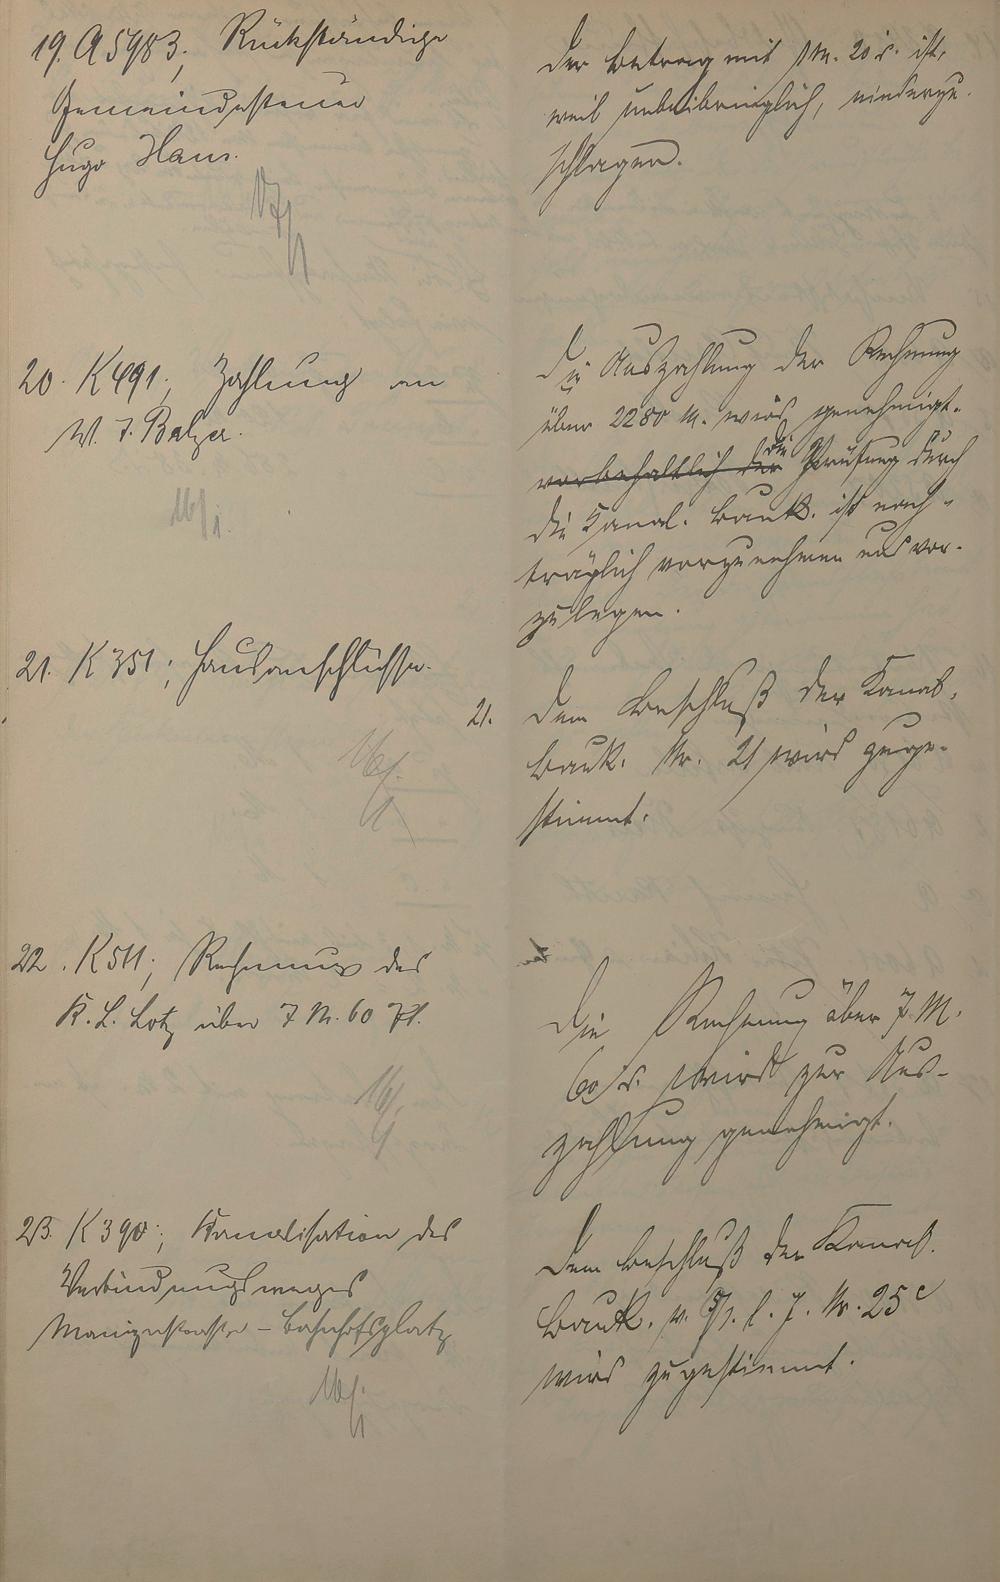 19. A 5983; Rückständige
Gemeindesteuer
Hugo Haus.
17/1
Der Betrag mit M. 20 d. ist,
weil unbeibringlich, niederzu-
schlagen.
20. K 491; Zahlung an
W. J. Balzer.
16/1.
Die Auszahlung der Rechnung
über 2280 M. wird genehmigt.
vorbehaltlich der die Prüfung durch
die Kanal. Bauk. ist nach-
träglich vorzunehmen und vor-
zulegen.
21. K 351; Hausanschlüsse.
16/1.
21. Dem Beschluß der Kanal.
Bauk. Nr. 21 wird zuge-
stimmt.
22. K 511; Rechnung des
K. L. Lotz über 7 M. 60 Pf.
16/1.
Die Rechnung über 7 M.
60 d. wird zur Aus-
zahlung genehmigt.
23. K 390; Kanalisation des
Verbindungsweges
Mainzerstraße – Bahnhofsplatz
16/1
Dem Beschluß der Kanal.
Bauk. v. l. J. Nr. 25 c
wird zugestimmt.